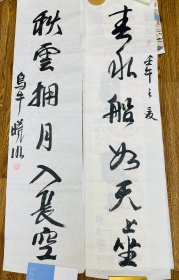 春水船如天上坐
壬午之夏
秋雲拥月入長空
烏牛